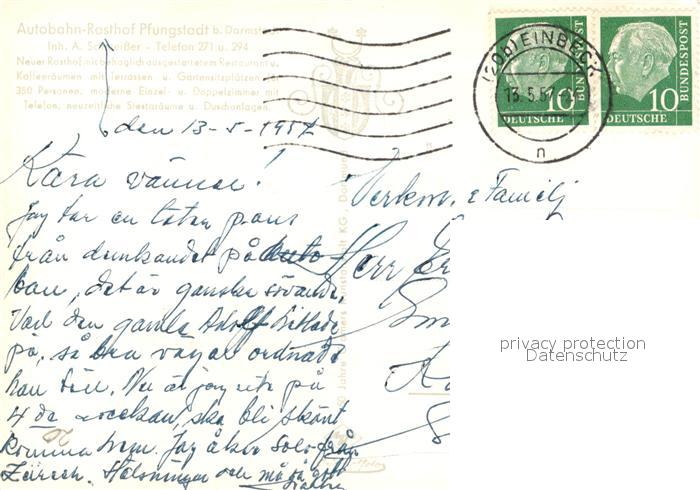 Autobahn-Rasthof Pfungstadt b. Darmstadt
Inh. A. Schweißer - Telefon 271 u. 294
Neuer Rasthof mit behaglich ausgestattetem Restaurant u.
Kaffeeräumen mit Terrassen u. Gartensitzplätzen für
350 Personen, moderne Einzel- u. Doppelzimmer mit
Telefon, neuzeitliche Sitzräume u. Duschanlagen.
(20b) EINBECK
13.5.57
n
10 10
DEUTSCHE DEUTSCHE
BUNDESPOST BUNDESPOST
den 13-5-1957
Kära vänner!
Jag tar en liten paus
från på Auto
ban, det är ganska
Vad den gamle Adolf hittade
på, så bra vägar ordnade
han till. Nu är jag ute på
4 de veckan, ska bli skönt
komma hem. Jag åker från
Zürich. Hälsningar och må så gott
Verkm. & Familj
Herr
privacy protection
Datenschutz